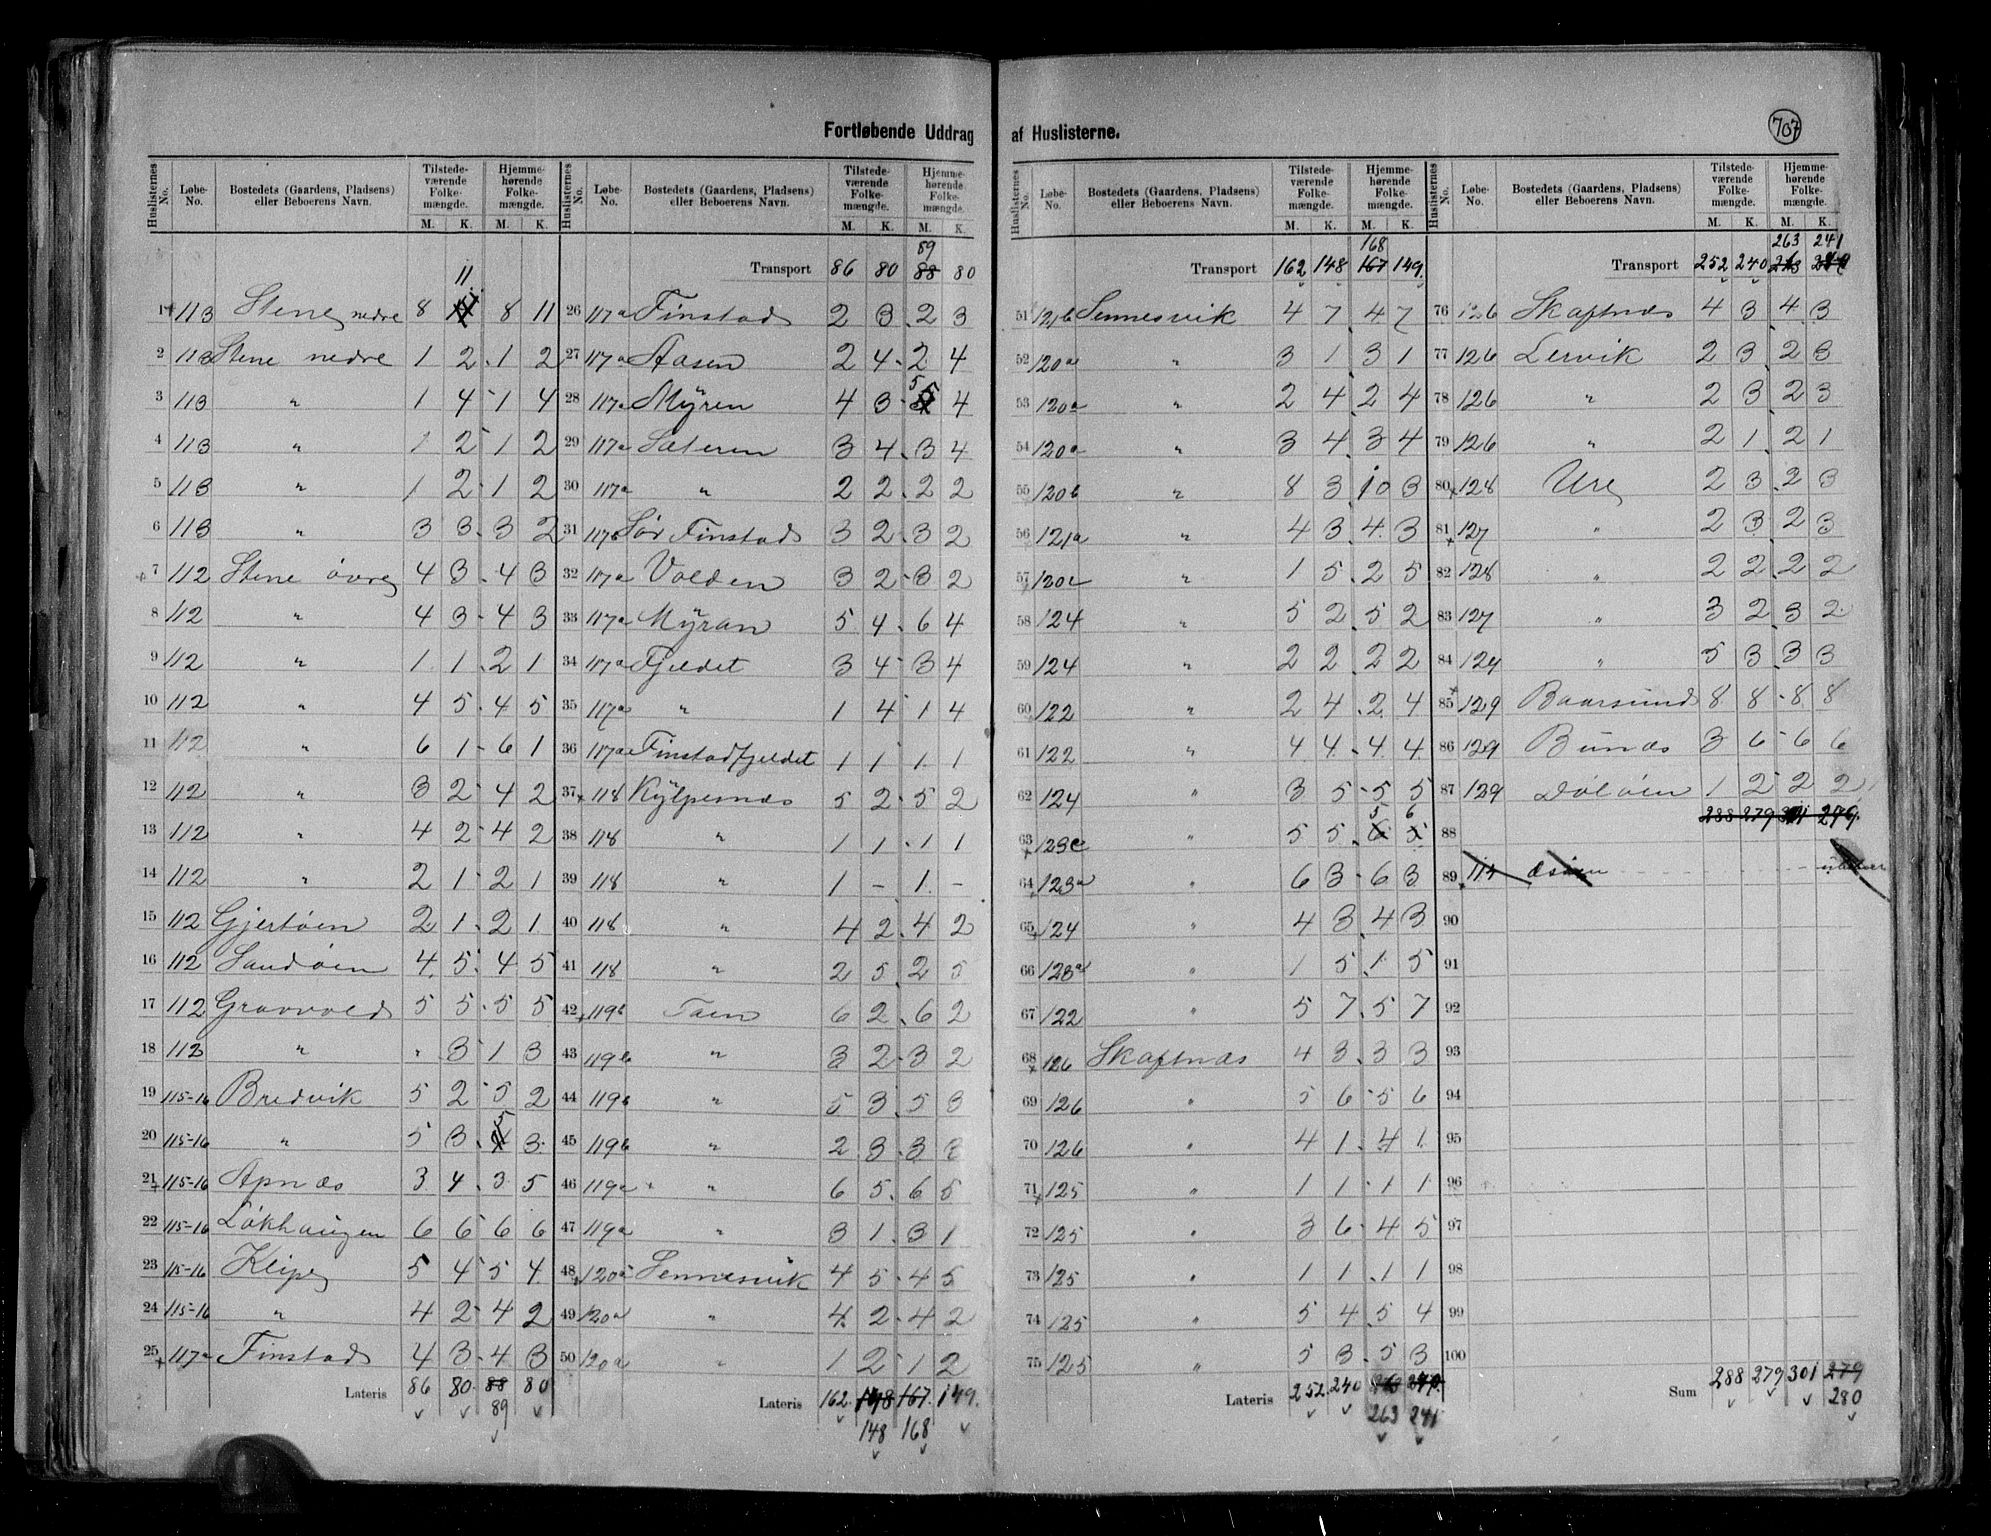 Fortløbende Uddrag af Huslisterne.
707
Huslisternes No. | Løbe-No. | Bostedets (Gaardens, Pladsens) eller Beboerens Navn. | Tilstedeværende Folkemængde. M. K. | Hjemmehørende Folkemængde. M. K.
11
1 113 Stene nedre 8 11 8 11
2 113 Stene nedre 1 2 1 2
3 113 " 1 4 1 4
4 113 " 1 2 1 2
5 113 " 1 2 1 2
6 113 " 3 3 3 2
7 112 Stene övre 4 3 4 3
8 112 " 4 3 4 3
9 112 " 1 1 2 1
10 112 " 4 5 4 5
11 112 " 6 1 6 1
12 112 " 3 2 4 2
13 112 " 4 2 4 2
14 112 " 2 1 2 1
15 112 Gjertöen 2 1 2 1
16 112 Sandöen 4 5 4 5
17 112 Gravvold 5 5 5 5
18 112 " " 3 1 3
19 115-16 Bredvik 5 2 5 2
20 115-16 " 5 3 5 3
21 115-16 Apnæs 3 4 3 5
22 115-16 Lökhaugen 6 6 6 6
23 115-16 Kleipe 5 4 5 4
24 115-16 " 4 2 4 2
25 117a Finstad 4 3 4 3
Lateris 86 80 88 80
89
Huslisternes No. | Løbe-No. | Bostedets (Gaardens, Pladsens) eller Beboerens Navn. | Tilstedeværende Folkemængde. M. K. | Hjemmehørende Folkemængde. M. K.
89
Transport 86 80 88 80
26 117a Finstad 2 3 2 3
27 117a Aasen 2 4 2 4
28 117a Myren 4 3 5 4
29 117a Sæteren 3 4 3 4
30 117a " 2 2 2 2
31 117b Sör Finstad 3 2 3 2
32 117a Volden 3 2 3 2
33 117a Myran 5 4 6 4
34 117a Fjeldet 3 4 3 4
35 117a " 1 4 1 4
36 117a Finstadfjeldet 1 1 1 1
37 118 Kylpesnæs 5 2 5 2
38 118 " 1 1 1 1
39 118 " 1 - 1 -
40 118 " 4 2 4 2
41 118 " 2 5 2 5
42 119b Taen 6 2 6 2
43 119b " 3 2 3 2
44 119b " 5 3 5 3
45 119b " 2 3 3 3
46 119a " 6 5 6 5
47 119a " 3 1 3 1
48 120a Sennesvik 4 5 4 5
49 120a " 4 2 4 2
50 120a " 1 2 1 2
Lateris 162 148 167 149
148 168
Huslisternes No. | Løbe-No. | Bostedets (Gaardens, Pladsens) eller Beboerens Navn. | Tilstedeværende Folkemængde. M. K. | Hjemmehørende Folkemængde. M. K.
168
Transport 162 148 167 149
51 121b Sennesvik 4 7 4 7
52 120a " 3 1 3 1
53 120a " 2 4 2 4
54 120a " 3 4 3 4
55 120b " 8 3 10 3
56 121a " 4 3 4 3
57 120c " 1 5 2 5
58 124 " 5 2 5 2
59 124 " 2 2 2 2
60 122 " 2 4 2 4
61 122 " 4 4 4 4
62 124 " 3 5 5 5
63 123c " 5 5 5 6
64 123a " 6 3 6 3
65 124 " 4 3 4 3
66 123a " 1 5 1 5
67 122 " 5 7 5 7
68 126 Skaftnæs 4 3 3 3
69 126 " 5 6 5 6
70 126 " 4 1 4 1
71 125 " 1 1 1 1
72 125 " 3 6 4 5
73 125 " 1 1 1 1
74 125 " 5 4 5 4
75 125 " 5 3 5 3
Lateris 252 240
263 241
Huslisternes No. | Løbe-No. | Bostedets (Gaardens, Pladsens) eller Beboerens Navn. | Tilstedeværende Folkemængde. M. K. | Hjemmehørende Folkemængde. M. K.
263 241
Transport 252 240
76 126 Skaftnæs 4 3 4 3
77 126 Lervik 2 3 2 3
78 126 " 2 3 2 3
79 126 " 2 1 2 1
80 128 Ure 2 3 2 3
81 127 " 2 3 2 3
82 128 " 2 2 2 2
83 127 " 3 2 3 2
84 127 " 5 3 3 3
85 129 Baarsund 8 8 8 8
86 129 Bunæs 3 6 6 6
87 129 Dölöen 1 2 2 2
288 279 301 279
88
89 114
90
91
92
93
94
95
96
97
98
99
100
Sum 288 279 301 279
280